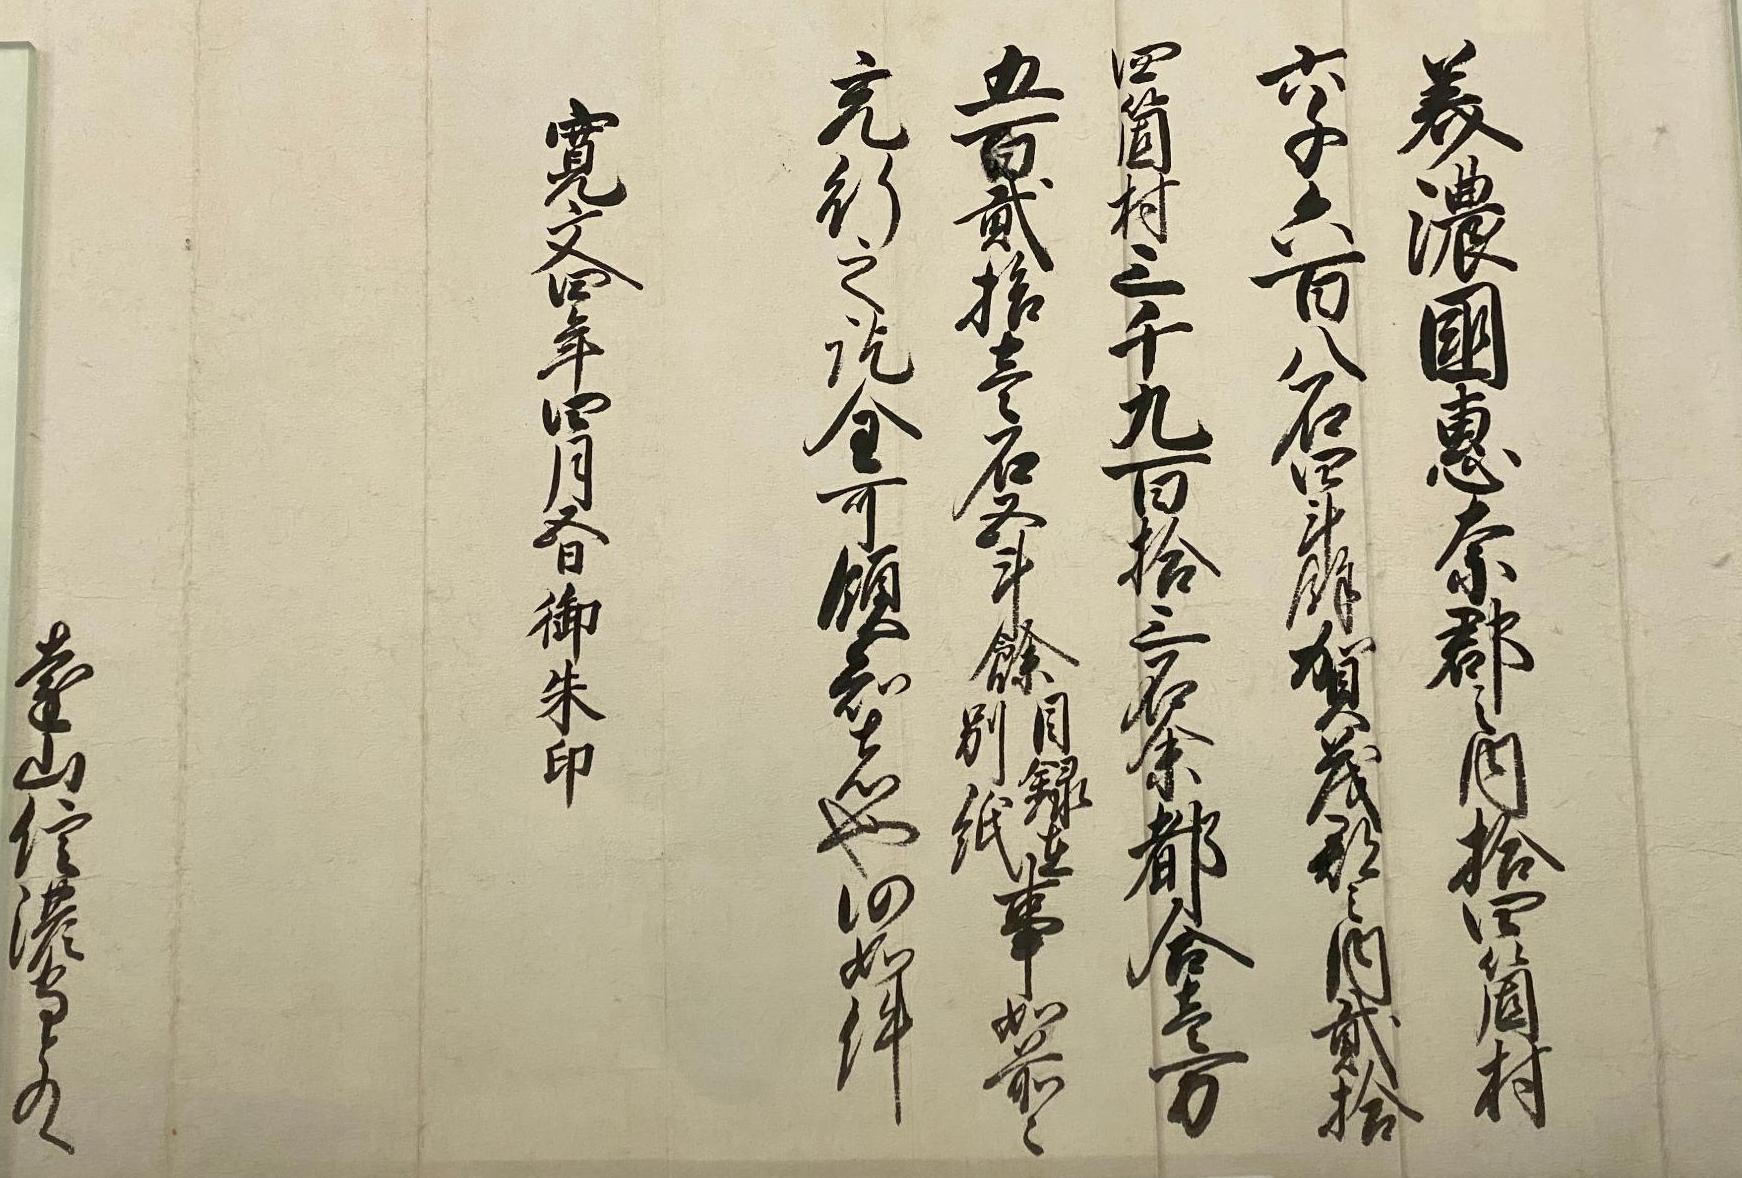 美濃國惠奈郡之内拾四箇村
六千六百八石四斗餘賀茂郡之内貳拾
四箇村三千九百拾三石余都合壹万
五百貳拾壹石五斗餘目録在別紙事如前々
充行之訖全可領知者也仍如件
寛文四年四月五日御朱印
遠山信濃守とのへ